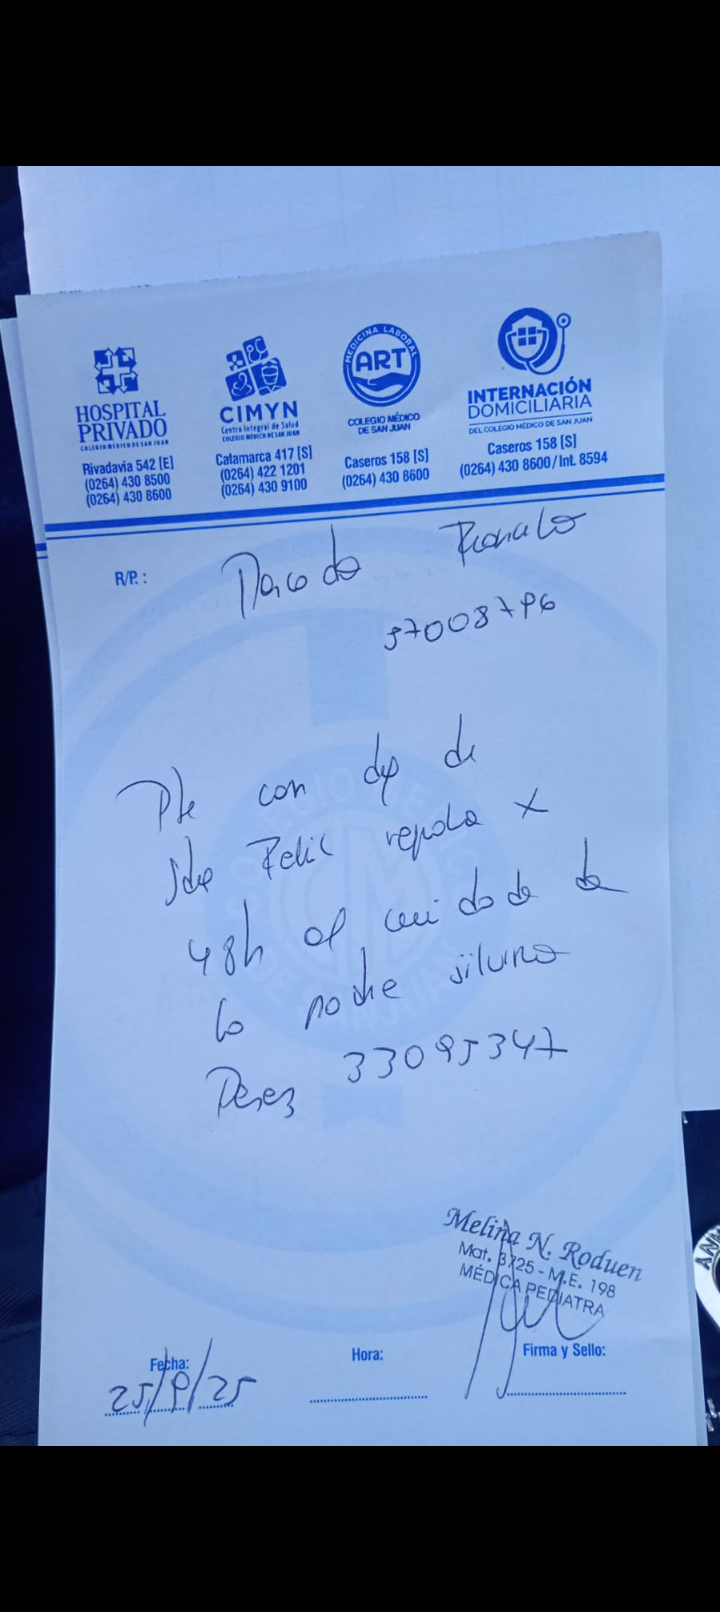 HOSPITAL
PRIVADO
COLEGIO MÉDICO DE SAN JUAN
Rivadavia 542 [E]
(0264) 430 8500
(0264) 430 8600
CIMYN
Centro Integral de Salud
COLEGIO MÉDICO DE SAN JUAN
Catamarca 417 [S]
(0264) 422 1201
(0264) 430 9100
MEDICINA LABORAL
ART
COLEGIO MÉDICO
DE SAN JUAN
Caseros 158 [S]
(0264) 430 8600
INTERNACIÓN
DOMICILIARIA
DEL COLEGIO MÉDICO DE SAN JUAN
Caseros 158 [S]
(0264) 430 8600/Int. 8594
R/P.:
37008796
con de
x
48h al cuidado de
la noche
Perez 33095347
Melina N. Roduen
Mat. 3725 - M.E. 198
MÉDICA PEDIATRA
Fecha:
25/9/25
Hora:
Firma y Sello: